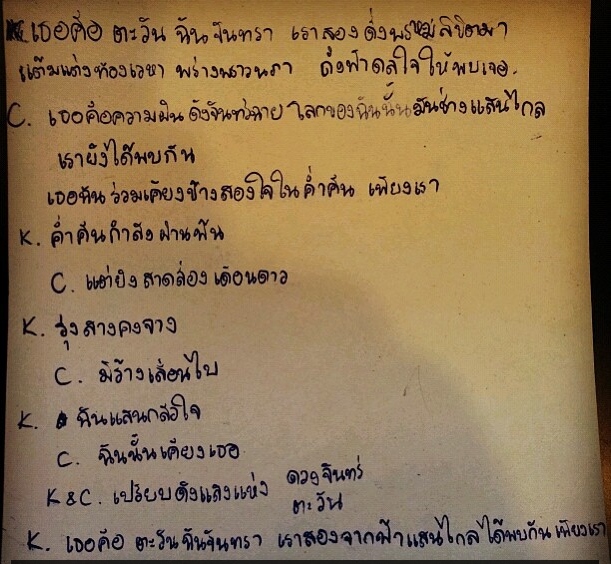 K. เธอคือ ตะวัน ฉันจันทรา เราสอง ดั่งพรหมลิขิตมา
แต้มแต่งท้องเวหา พร่างพราวนภา ดั่งฟ้าดลใจให้พบเจอ.
C. เธอคือความฝัน ดังจันทร์ฉาย โลกของฉันนั้นมันช่างแสนไกล
เรายังได้พบกัน
เธอฉัน ร่วมเคียงข้างสองใจในค่ำคืน เพียงเรา
K. ค่ำคืนกำลังผ่านพ้น
C. แต่ยังสาดส่องเดือนดาว
K. รุ่งสางคงจาง
C. มิร้างเลือนไป
K. ฉันแสนกลัวใจ
C. ฉันนั้นเคียงเธอ
K&C. เปรียบดังแสงแห่ง ดวงจันทร์
ตะวัน
K. เธอคือ ตะวัน ฉันจันทรา เราสองจากฟ้าแสนไกลได้พบกัน เพียงเรา